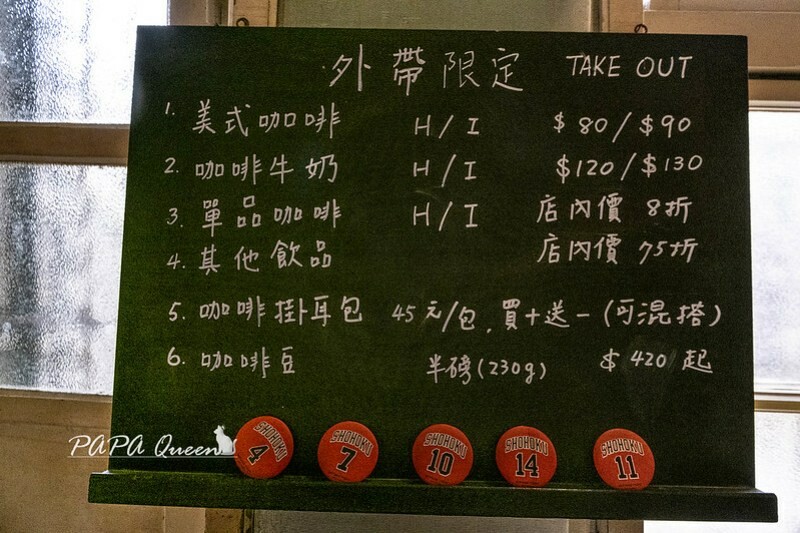 外帶限定 TAKE OUT
1. 美式咖啡 H/I $80/$90
2. 咖啡牛奶 H/I $120/$130
3. 單品咖啡 H/I 店內價 8折
4. 其他飲品 店內價 75折
5. 咖啡掛耳包 45元/包, 買十送一(可混搭)
6. 咖啡豆 半磅(230g) $420起
PAPA Queen
SHOHOKU 4
SHOHOKU 7
SHOHOKU 10
SHOHOKU 14
SHOHOKU 11